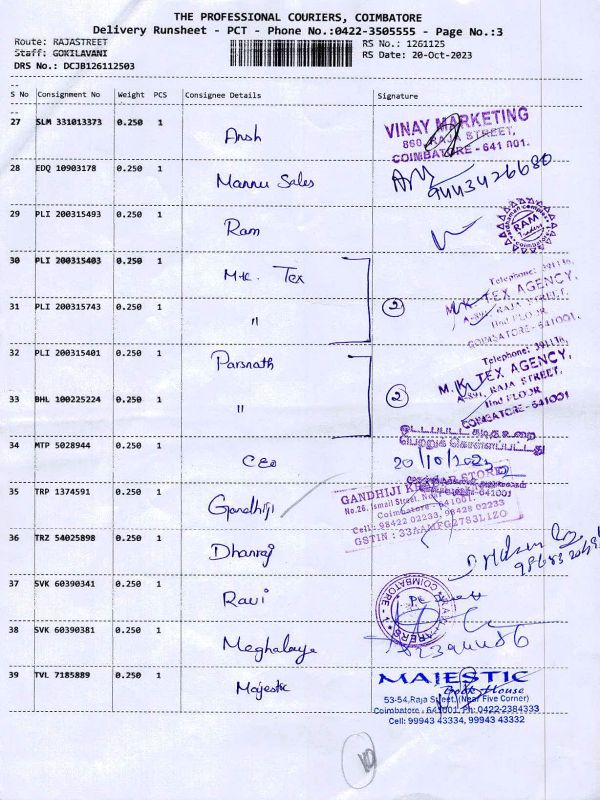 THE PROFESSIONAL COURIERS, COIMBATORE
Delivery Runsheet - PCT - Phone No.:0422-3505555 - Page No.:3
Route: RAJASTREET
RS No.: 1261125
Staff: GOKILAVANI
RS Date: 20-Oct-2023
DRS No.: DCJB126112503
S No Consignment No Weight PCS Consignee Details Signature
27 SLM 331013373 0.250 1 Ansh
VINAY MARKETING
860, RAJA STREET,
COIMBATORE - 641 001.
28 EDQ 10903178 0.250 1 Mannu Sales
9443426680
29 PLI 200315493 0.250 1 Ram
RAM
Coimbatore
30 PLI 200315403 0.250 1 M.K. Tex
31 PLI 200315743 0.250 1 "
2
Telephone: 391116,
M.K. TEX AGENCY,
A-891, RAJA STREET,
IInd FLOOR
COIMBATORE - 641001.
32 PLI 200315401 0.250 1 Parsnath
33 BHL 100225224 0.250 1 "
2
Telephone: 391116,
M.K. TEX AGENCY,
A-891, RAJA STREET,
IInd FLOOR
COIMBATORE - 641001
34 MTP 5028944 0.250 1 CEO
பெற்றுக் கொள்ளப்பட்டது
20/10/2023
35 TRP 1374591 0.250 1 Gandhiji
GANDHIJI KHADAR STORE
No.26, Ismail Street,
Coimbatore - 641001.
Cell: 98422 02233, 98428 02233
GSTIN : 33AAMFG2783L1ZO
36 TRZ 54025898 0.250 1 Dhanraj
37 SVK 60390341 0.250 1 Ravi
COIMBATORE - 1
38 SVK 60390381 0.250 1 Meghalaya
39 TVL 7185889 0.250 1 Majestic
MAJESTIC
Book House
53-54, Raja Street, (Near Five Corner)
Coimbatore - 641001, Ph: 0422-2384333
Cell: 99943 43334, 99943 43332